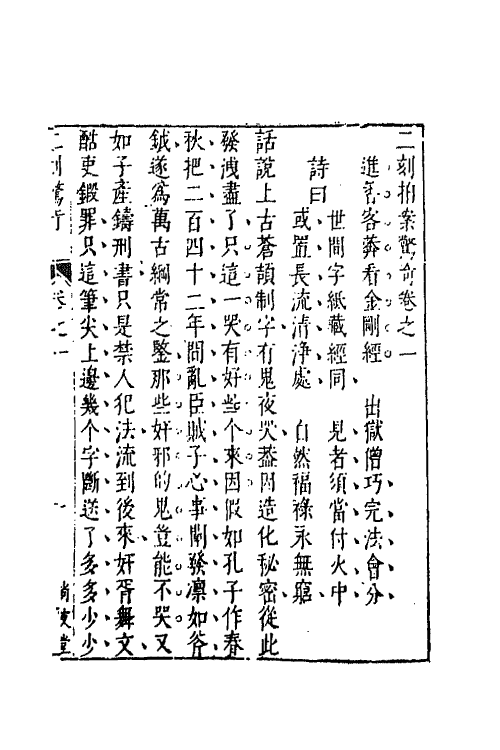 二刻拍案驚奇卷之一
進香客莽看金剛經　出獄僧巧完法會分
詩曰
世間字紙藏經同　見者須當付火中
或置長流清淨處　自然福祿永無窮
話說上古蒼頡制字有鬼夜哭蓋因造化秘密從此
發洩盡了只這一哭有好些个來因假如孔子作春
秋把二百四十二年間亂臣賊子心事闡發凛如斧
鉞遂爲萬古綱常之鑒那些奸邪的鬼豈能不哭又
如子產鑄刑書只是禁人犯法流到後來奸胥舞文
酷吏鍛罪只這筆尖上邊幾个字斷送了多多少少
二刻驚奇　卷之一　一　尚友堂